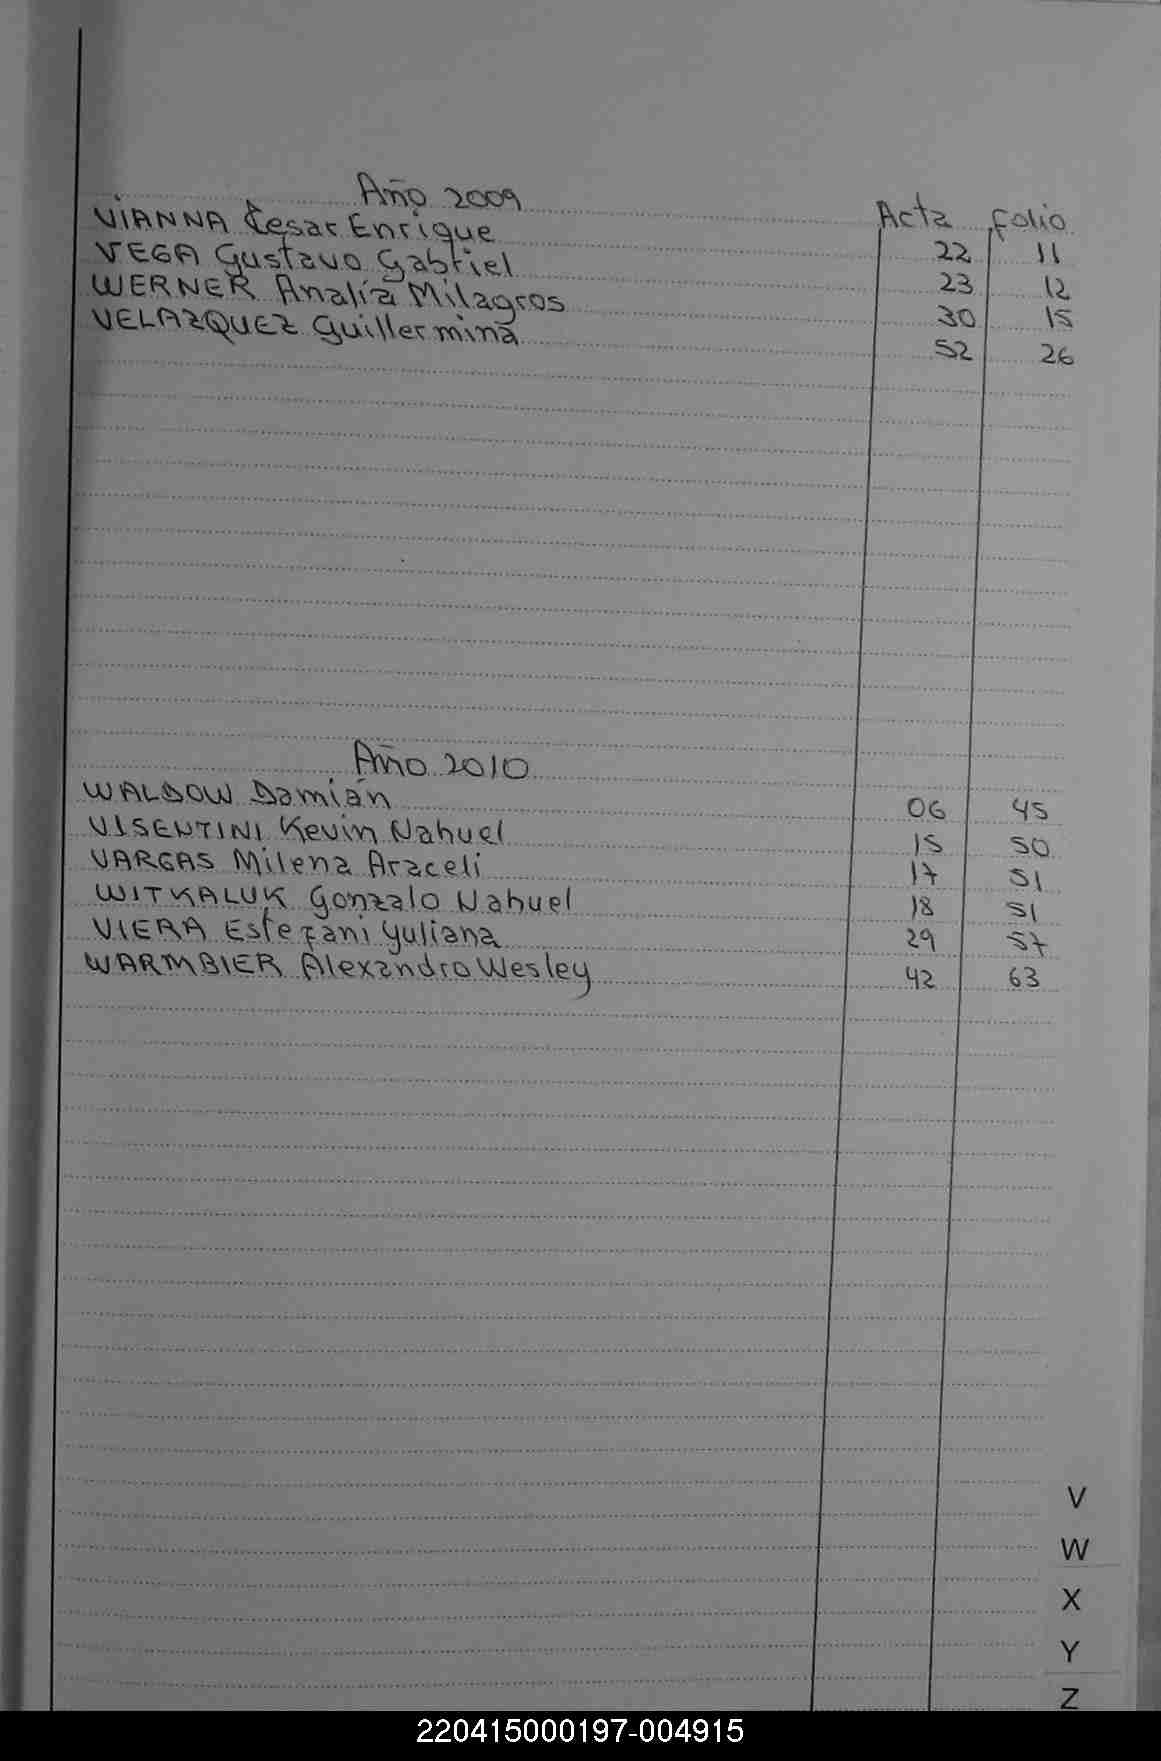 Año 2009
Acta folio
VIANNA Cesar Enrique 22 11
VEGA Gustavo Gabriel 23 12
WERNER Analía Milagros 30 15
VELAZQUEZ Guillermina 52 26
Año 2010
WALDOW Damián 06 45
VISENTINI Kevin Nahuel 15 50
VARGAS Milena Araceli 17 51
WITKALUK Gonzalo Nahuel 18 51
VIERA Estefani Yuliana 29 57
WARMBIER Alexandro Wesley 42 63
V
W
X
Y
Z
220415000197-004915